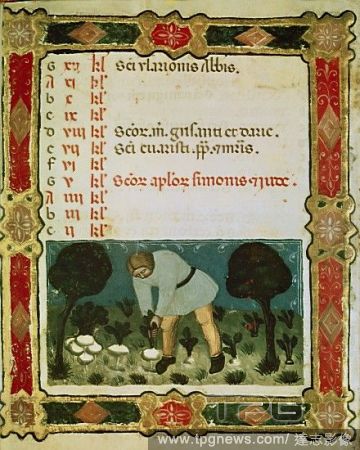 G xii kl'
Sci ylarionis abbis.
A xi kl'
b x kl'
c ix kl'
d viii kl' Scor. m. grisanti et darie.
e vii kl' Sci euaristi pp. et mris.
f vi kl'
G v kl' Scor aplor simonis et iude.
A iiii kl'
b iii kl'
c ii kl'
TPG
www.tpgnews.com/達志影像